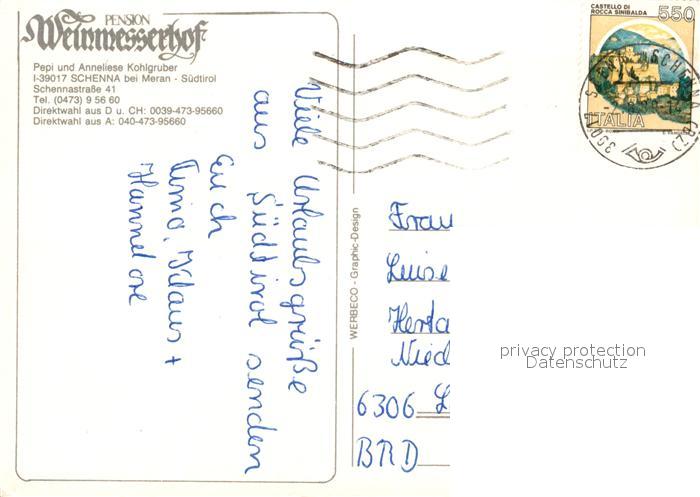 PENSION
Weinmesserhof
Pepi und Anneliese Kohlgruber
I-39017 SCHENNA bei Meran - Südtirol
Schennastraße 41
Tel. (0473) 9 56 60
Direktwahl aus D u. CH: 0039-473-95660
Direktwahl aus A: 040-473-95660
Viele Urlaubsgrüße
aus Südtirol senden
Euch
Timo, Klaus +
Hannelore
WERBECO - Graphic-Design
CASTELLO DI
ROCCA SINIBALDA
550
ITALIA
SCHENNA
(BZ)
Frau
Luise
Herta
Nied
6306 L
BRD
privacy protection
Datenschutz